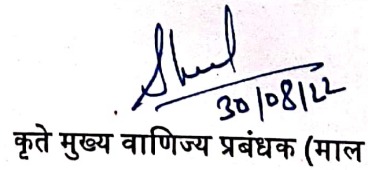 30/08/22
कृते मुख्य वाणिज्य प्रबंधक (माल